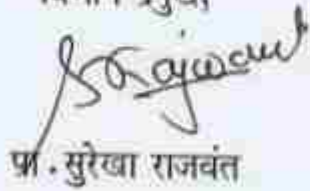 SRajwant
प्रा. सुरेखा राजवंत